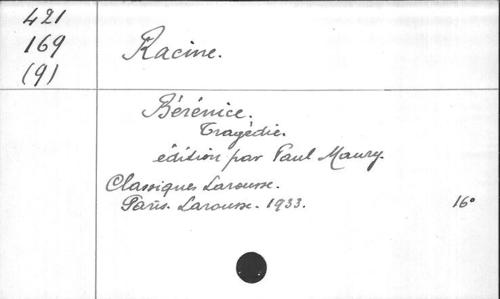 421
169
(9)
Racine.
Bérénice.
Tragédie.
édition par Paul Maury.
Classiques Larousse.
Paris. Larousse. 1933. 16°